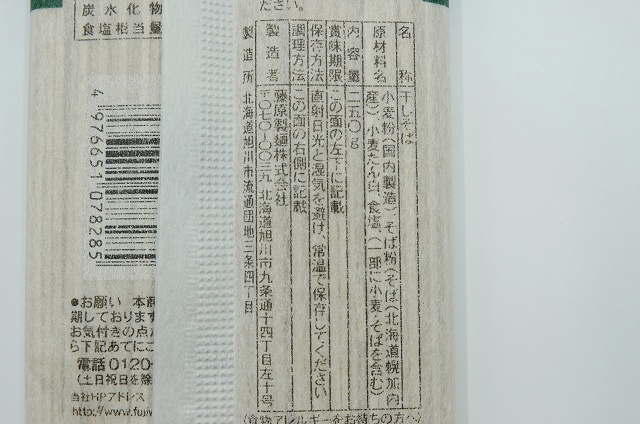 ださい。
名　称　干しそば
原材料名　小麦粉（国内製造）、そば粉（そば（北海道幌加内
産））、小麦たん白、食塩、（一部に小麦・そばを含む）
内容量　二五〇g
賞味期限　この面の左下に記載
保存方法　直射日光と湿気を避け、常温で保存してください
調理方法　この面の右側に記載
製造者　藤原製麺株式会社
〒〇七〇-〇〇三九　北海道旭川市九条通十四丁目左十号
製造所　北海道旭川市流通団地三条四丁目
炭水化物
食塩相当量
4976651078285
●お願い　本商
期しております
お気付きの点が
ら下記あてにご
電話 0120-
（土日祝日を除
当社HPアドレス
http://www.fujiw
（食物アレルギーをお持ちの方へ）